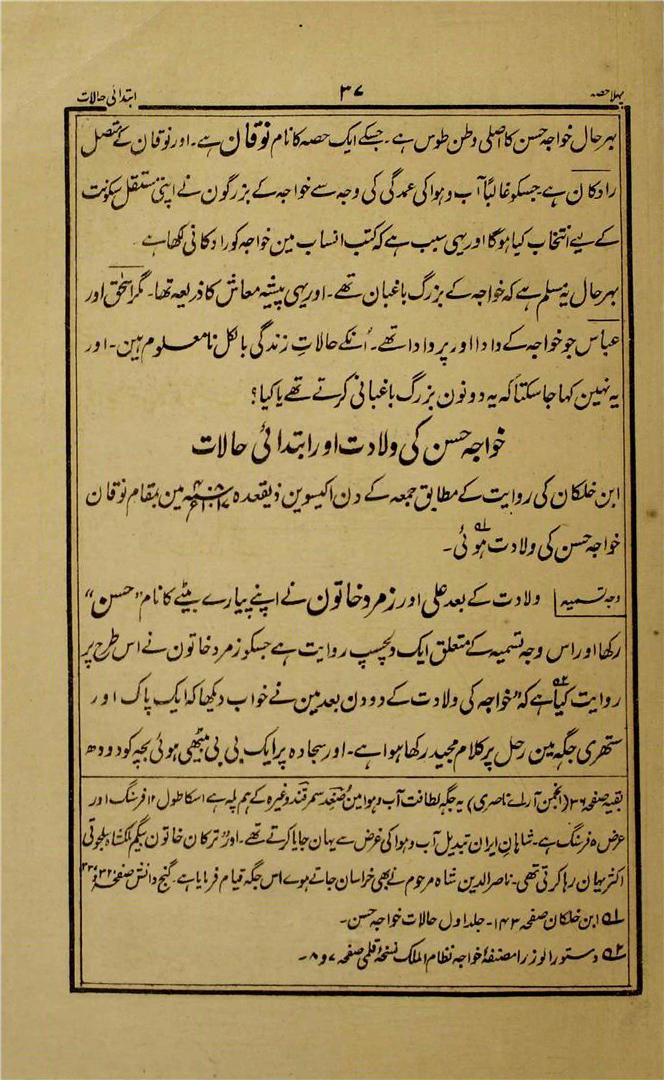 پہلا حصہ ۳۷ ابتدائی حالات
بہر حال خواجہ حسن کا اصلی وطن طوس ہے۔ جسکے ایک حصہ کا نام نوقان ہے۔ اور نوقان کے متصل
رادکان ہے جسکو غالباً آب و ہوا کی عمدگی کی وجہ سے خواجہ کے بزرگون نے اپنی مستقل سکونت
کے لیے انتخاب کیا ہوگا اور یہی سبب ہے کہ کتب انساب مین خواجہ کو رادکانی لکھا ہے۔
بہر حال یہ مسلم ہے کہ خواجہ کے بزرگ باغبان تھے۔ اور یہی پیشہ معاش کا ذریعہ تھا۔ مگر اسحٰق اور
عباس جو خواجہ کے دادا اور پردادا تھے۔ اُنکے حالاتِ زندگی بالکل نامعلوم ہین۔ اور
یہ نہین کہا جا سکتا کہ یہ دونون بزرگ باغبانی کرتے تھے یا کیا؟
خواجہ حسن کی ولادت اور ابتدائی حالات
ابن خلکان کی روایت کے مطابق جمعہ کے دن اکیسوین ذیقعدہ مین بمقام نوقان
خواجہ حسن کی ولادت ہوئی۔ ۵۱
وجہ تسمیہ ولادت کے بعد علی اور زمرد خاتون نے اپنے پیارے بیٹے کا نام "حسن"
رکھا اور اس وجہ تسمیہ کے متعلق ایک دلچسپ روایت ہے جسکو زمرد خاتون نے اس طرح پر
روایت کیا ۵۲ ہے کہ "خواجہ کی ولادت کے دو دن بعد مین نے خواب دیکھا کہ ایک پاک اور
ستھری جگہ مین رحل پر کلام مجید رکھا ہوا ہے۔ اور سجادہ پر ایک بی بی بیٹھی ہوئی بچہ کو دودھ
بقیہ صفحہ ۳۶ (انجمن آراے ناصری) یہ جگہ لطافت آب و ہوا مین صُغد سمرقند وغیرہ کے ہم پلہ ہے اسکا طول ۱۲ فرسنگ اور
عرض ۵ فرسنگ ہے۔ شاہان ایران تبدیل آب و ہوا کی غرض سے یہان جایا کرتے تھے۔ اور ترکان خاتون بیگم ملکشاہ سلجوقی
اکثر یہان رہا کرتی تھی۔ ناصر الدین شاہ مرحوم نے بھی خراسان جاتے ہوے اس جگہ قیام فرمایا ہے۔ گنج دانش صفحہ
۵۱ ابن خلکان صفحہ ۱۴۳۔ جلد اول حالات خواجہ حسن۔
۵۲ دستور الوزرا مصنفۂ خواجہ نظام الملک نسخۂ قلمی صفحہ ۷ و ۸۔